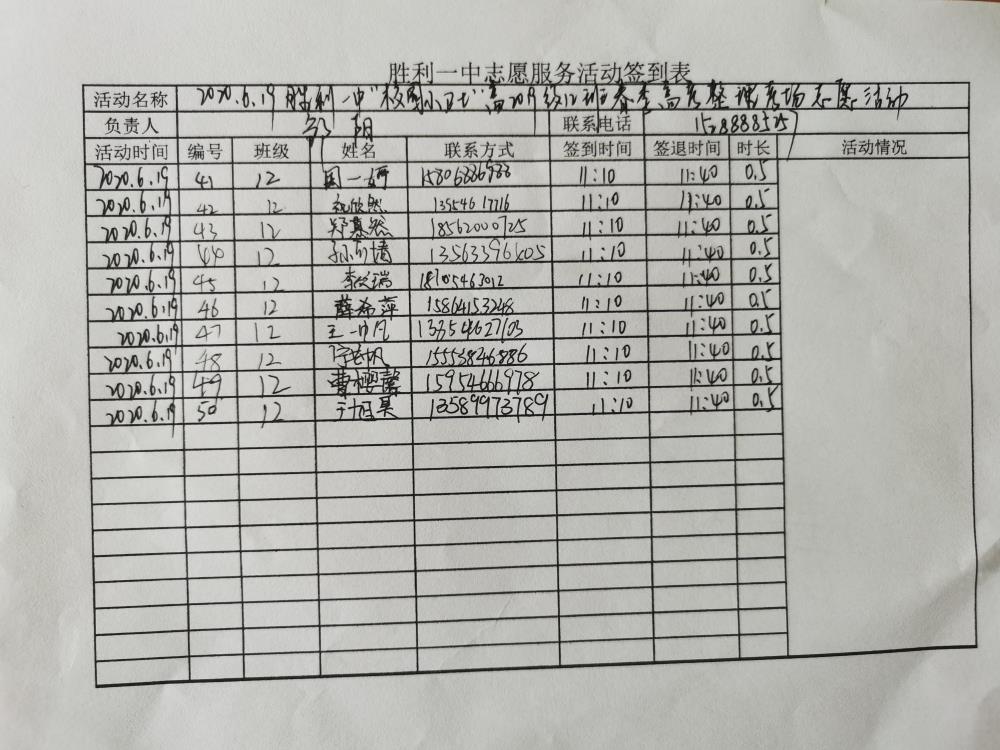 胜利一中志愿服务活动签到表
活动名称 2020.6.19 胜利一中"校园小卫士"高2019级12班春季高考整理考场志愿活动
负责人 邹 联系电话
活动时间 编号 班级 姓名 联系方式 签到时间 签退时间 时长 活动情况
2020.6.19 41 12 周一婷 15806886988 11:10 11:40 0.5
2020.6.19 42 12 欣然 13554617716 11:10 11:40 0.5
2020.6.19 43 12 郑慕然 18562000725 11:10 11:40 0.5
2020.6.19 44 12 孙可清 13563396605 11:10 11:40 0.5
2020.6.19 45 12 李 瑞 18705463012 11:10 11:40 0.5
2020.6.19 46 12 薛希萍 15864153248 11:10 11:40 0.5
2020.6.19 47 12 王一帆 13354627103 11:10 11:40 0.5
2020.6.19 48 12 帆 15553846886 11:10 11:40 0.5
2020.6.19 49 12 曹樱馨 15954666978 11:10 11:40 0.5
2020.6.19 50 12 昊 13589973789 11:10 11:40 0.5